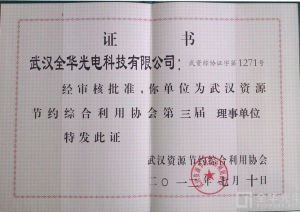 证 书
武汉全华光电科技有限公司：
武资综协证字第1271号
经审核批准，你单位为武汉资源
节约综合利用协会第三届 理事单位
特发此证
武汉资源节约综合利用协会
二〇一一年七月十日